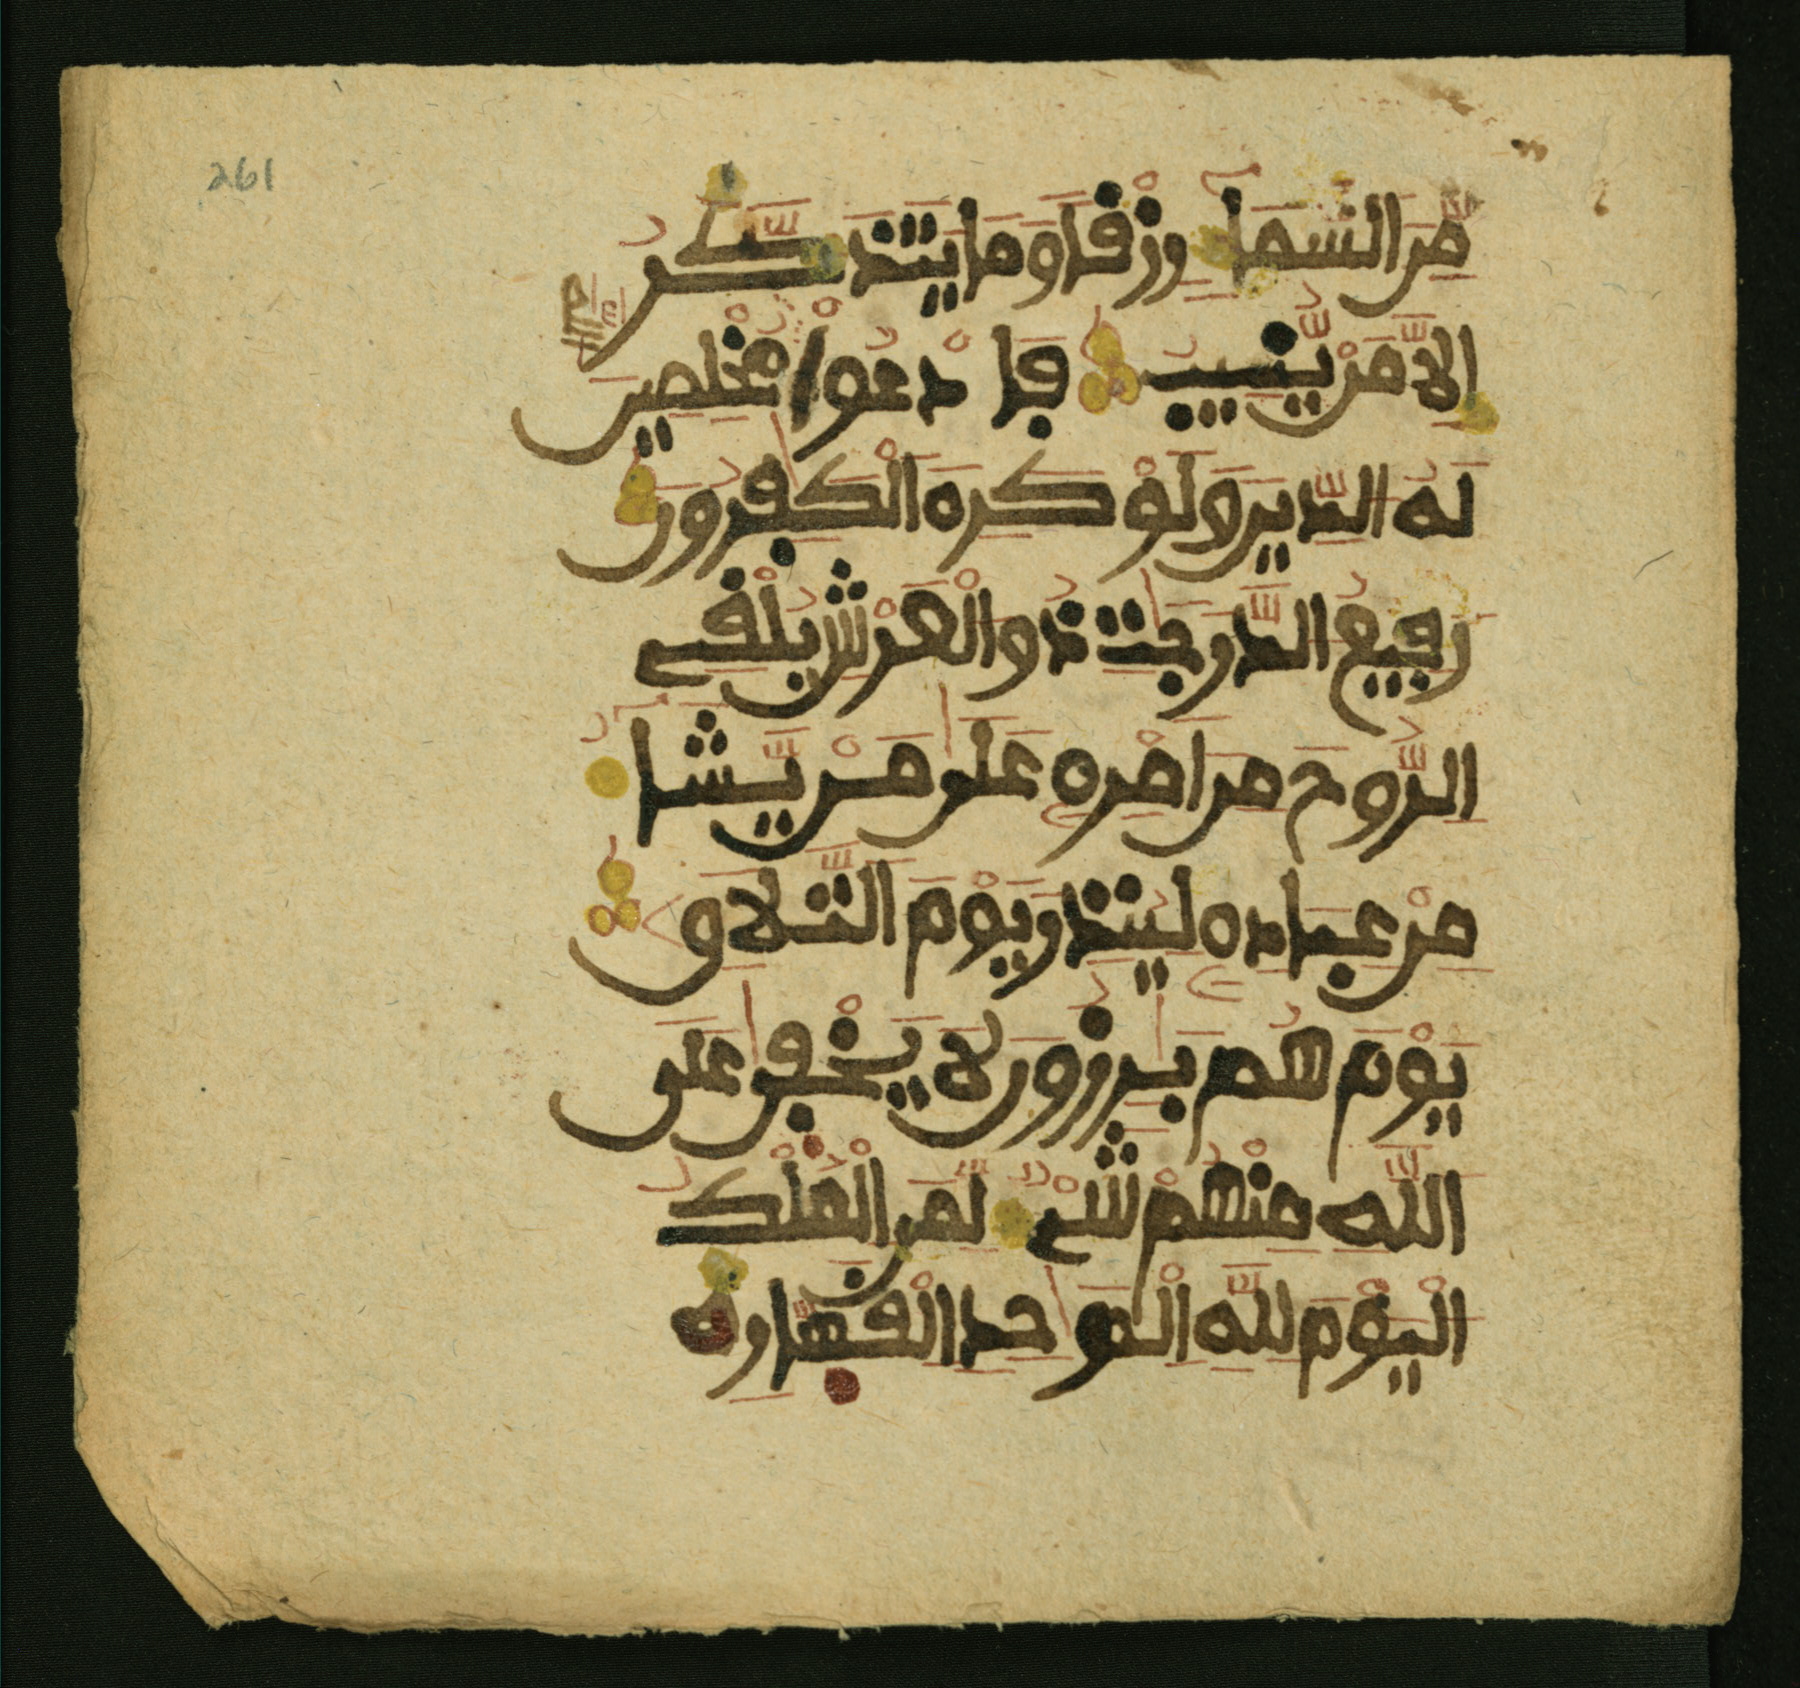 261
مِّنَ السَّمَآءِ رِزْقًا وَمَا يَتَذَكَّرُ
إِلَّا مَنْ يُّنِيبُ فَادْعُوا۟ اللَّهَ مُخْلِصِينَ
لَهُ الدِّينَ وَلَوْ كَرِهَ الْكَٰفِرُونَ
رَفِيعُ الدَّرَجَٰتِ ذُو الْعَرْشِ يُلْقِے
الرُّوحَ مِنَ امْرِهِ عَلَىٰ مَنْ يَّشَآءُ
مِنْ عِبَادِهِ لِيُنذِرَ يَوْمَ التَّلَاقِ
يَوْمَ هُم بَٰرِزُونَ لَا يَخْفَىٰ عَلَى
اللَّهِ مِنْهُمْ شَےْءٌ لِّمَنِ الْمُلْكُ
الْيَوْمَ لِلَّهِ الْوَٰحِدِ الْقَهَّارِ